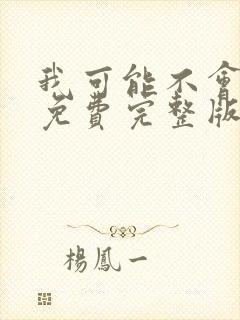 我可能不會
免費完整版
楊鳳一